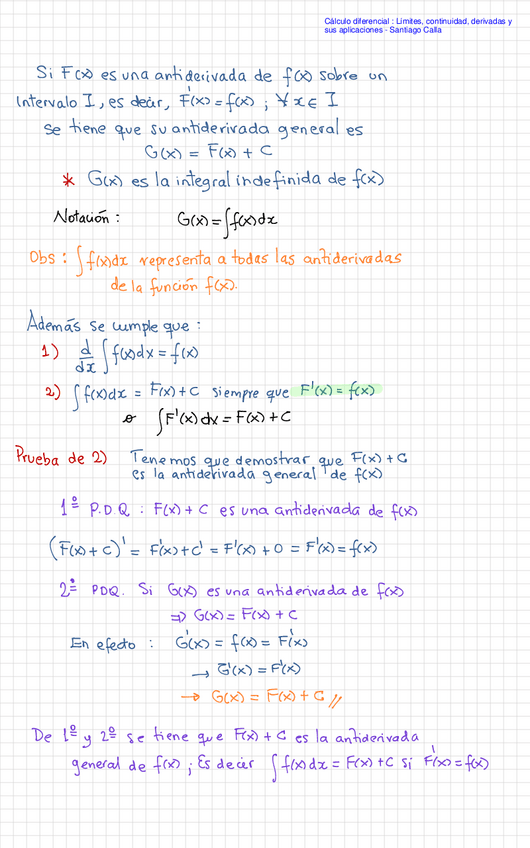 Cálculo diferencial : Limites, continuidad, derivadas y
sus aplicaciones - Santiago Calla
Si F(x) es una antiderivada de f(x) sobre un
Intervalo I, es decir, F'(x) = f(x) ; ∀ x ∈ I
se tiene que su antiderivada general es
G(x) = F(x) + C
* G(x) es la integral indefinida de f(x)
Notación : G(x) = ∫ f(x) dx
Obs : ∫ f(x) dx representa a todas las antiderivadas
de la función f(x).
Además se cumple que :
1) d/dx ∫ f(x) dx = f(x)
2) ∫ f(x) dx = F(x) + C siempre que F'(x) = f(x)
o ∫ F'(x) dx = F(x) + C
Prueba de 2) Tenemos que demostrar que F(x) + C
es la antiderivada general de f(x)
1º P.D.Q : F(x) + C es una antiderivada de f(x)
(F(x) + C)' = F'(x) + C' = F'(x) + 0 = F'(x) = f(x)
2º PDQ. Si G(x) es una antiderivada de f(x)
⇒ G(x) = F(x) + C
En efecto : G'(x) = f(x) = F'(x)
→ G'(x) = F'(x)
→ G(x) = F(x) + C //
De 1º y 2º se tiene que F(x) + C es la antiderivada
general de f(x) ; Es decir ∫ f(x) dx = F(x) + C si F'(x) = f(x)